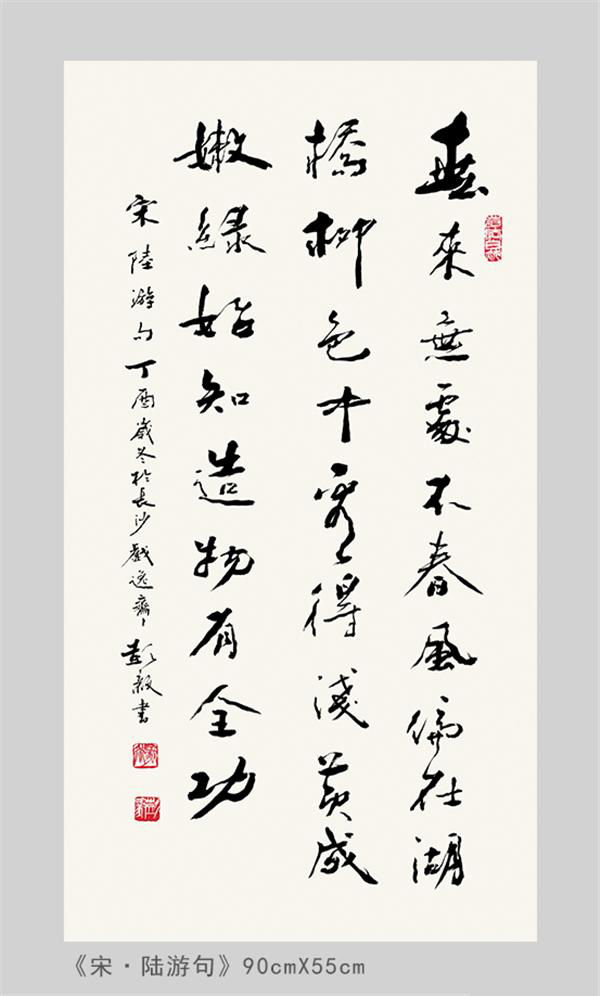 春來無處不春風偏在湖
橋柳色中看得淺黃成
嫩綠始知造物有全功
宋陸游句丁酉歲冬於長沙戲逸齋彭毅書
《宋·陆游句》90cmX55cm